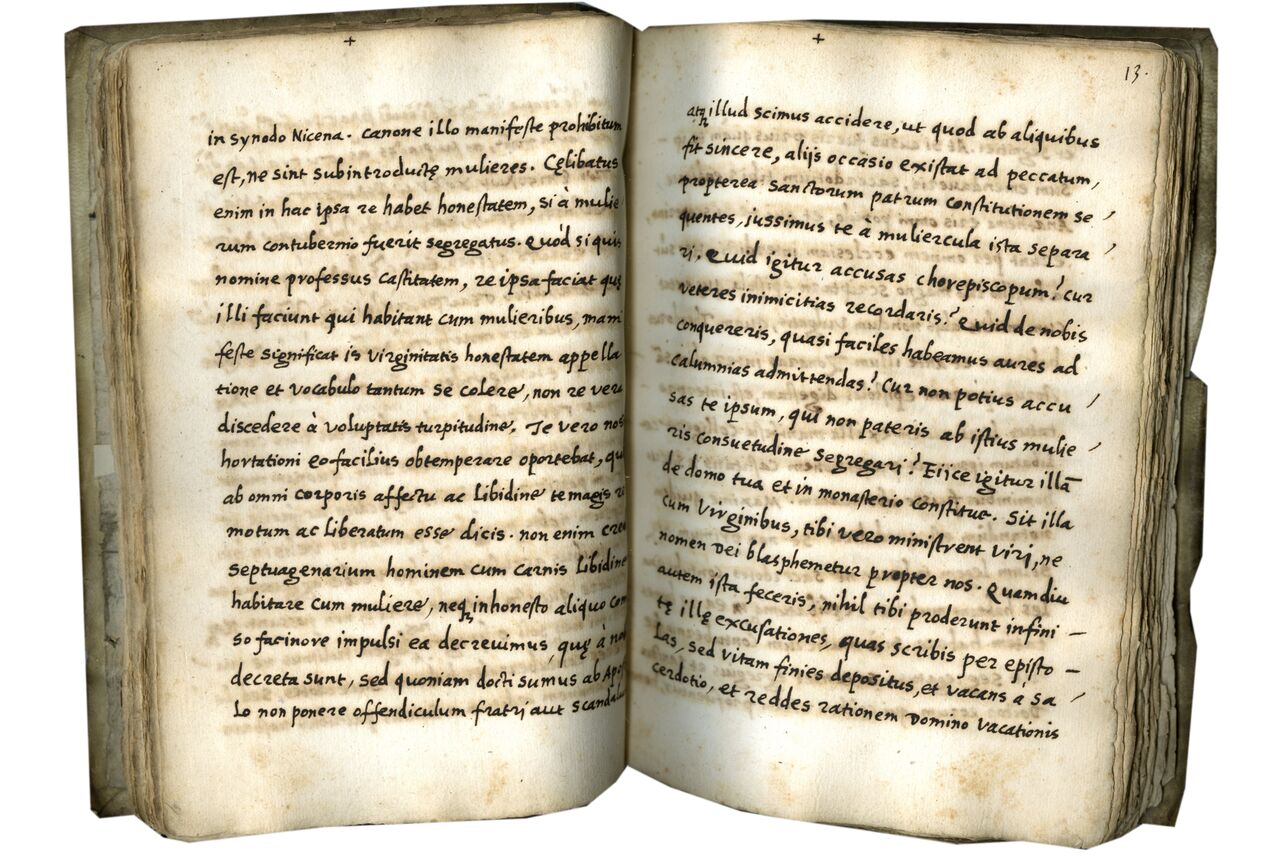 +
in synodo Nicena. Canone illo manifeste prohibitum
est, ne sint subintroductę mulieres. Cęlibatus
enim in hac ipsa re habet honestatem, si à mulie
rum contubernio fuerit segregatus. Quod si quis
nomine professus castitatem, re ipsa faciat quę
illi faciunt qui habitant cum mulieribus, mani
feste significat is virginitatis honestatem appella
tione et vocabulo tantum se colere, non re vera
discedere à voluptatis turpitudine. Te vero nos
hortationi eo facilius obtemperare oportebat, qu
ab omni corporis affectu ac libidine te magis r
motum ac liberatum esse dicis. non enim cre
septuagenarium hominem cum carnis libidine
habitare cum muliere, neq inhonesto aliquo com
so facinore impulsi ea decreuimus, quę à no
decreta sunt, sed quoniam docti sumus ab Apos
lo non ponere offendiculum fratri aut scandalu
+
13.
atq illud scimus accidere, ut quod ab aliquibus
fit sincere, alijs occasio existat ad peccatum,
propterea sanctorum patrum constitutionem se
quentes, jussimus te à muliercula ista separa
ri. Quid igitur accusas chorepiscopum? Cur
veteres inimicitias recordaris? Quid de nobis
conquereris, quasi faciles habeamus aures ad
calumnias admittendas? Cur non potius accu
sas te ipsum, qui non pateris ab istius mulie
ris consuetudine segregari? Eijce igitur illā
de domo tua et in monasterio constitue. Sit illa
cum virginibus, tibi vero ministrent viri, ne
nomen Dei blasphemetur propter nos. Quamdiu
autem ista feceris, nihil tibi proderunt infini –
tę illę excusationes, quas scribis per episto –
las, sed vitam finies depositus, et vacans a sa
cerdotio, et reddes rationem Domino vacationis